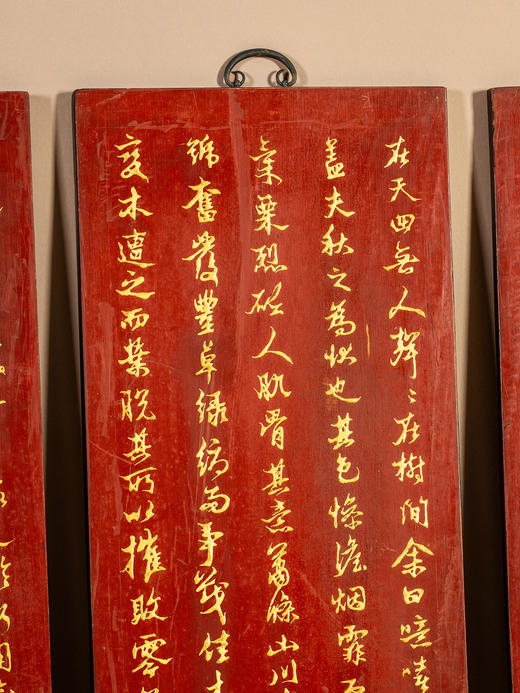 在天四無人聲〻在樹間余曰噫嘻
盖夫秋之為狀也其色惨澹烟霏
氣栗烈砭人肌骨其意蕭條山川
號奮發豐草绿縟而爭茂佳木
变木遭之而葉脱其所以摧敗零